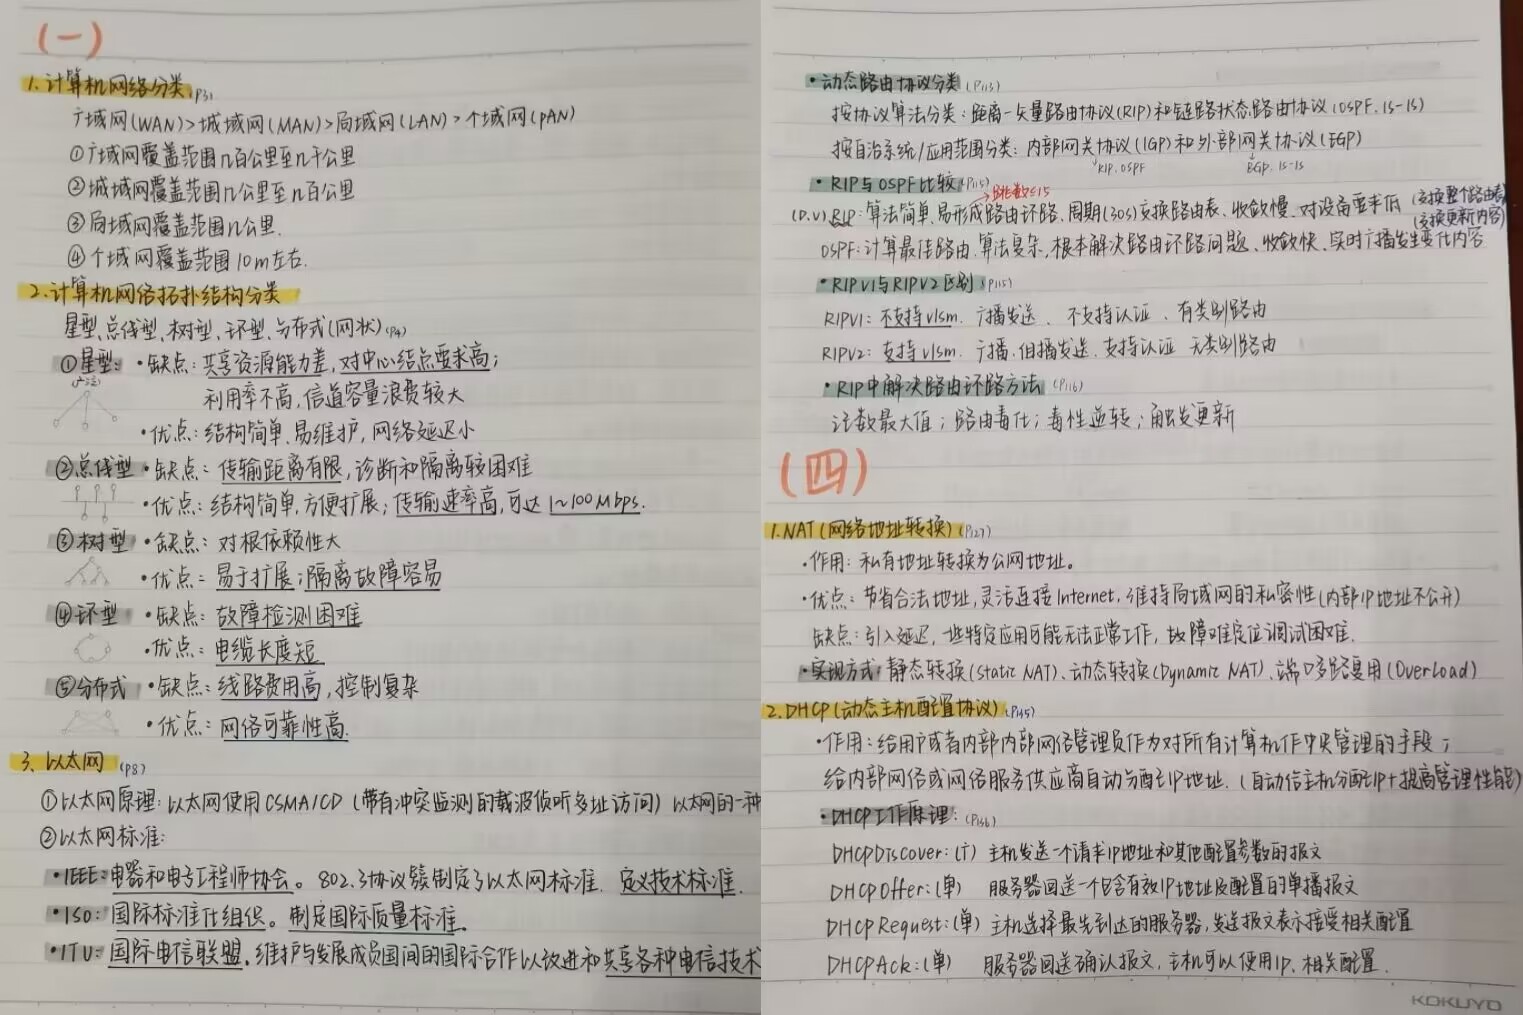 (一)
1.计算机网络分类(P3)
广域网(WAN)>城域网(MAN)>局域网(LAN)>个域网(PAN)
①广域网覆盖范围几百公里至几千公里
②城域网覆盖范围几公里至几百公里
③局域网覆盖范围几公里.
④个域网覆盖范围10m左右.
2.计算机网络拓扑结构分类
星型、总线型、树型、环型、分布式(网状)(P4)
①星型:·缺点:共享资源能力差,对中心结点要求高;
利用率不高,信道容量浪费较大
·优点:结构简单、易维护,网络延迟小
②总线型·缺点:传输距离有限,诊断和隔离较困难
·优点:结构简单,方便扩展;传输速率高,可达1~100Mbps.
③树型·缺点:对根依赖性大
·优点:易于扩展;隔离故障容易
④环型·缺点:故障检测困难
·优点:电缆长度短
⑤分布式·缺点:线路费用高,控制复杂
·优点:网络可靠性高.
3、以太网(P8)
①以太网原理:以太网使用CSMA/CD(带有冲突监测的载波侦听多址访问)以太网的一种
②以太网标准:
·IEEE:电器和电子工程师协会。802.3协议簇制定了以太网标准.定义技术标准.
·ISO:国际标准化组织。制定国际质量标准.
·ITU:国际电信联盟.维护与发展成员国间的国际合作以改进和共享各种电信技术
·动态路由协议分类(P113)
按协议算法分类:距离-矢量路由协议(RIP)和链路状态路由协议(OSPF.IS-IS)
按自治系统/应用范围分类:内部网关协议(IGP)和外部网关协议(EGP)
RIP.OSPF BGP.IS-IS
·RIP与OSPF比较(P115)
跳数≤15
(D.V)RIP:算法简单、易形成路由环路、周期(30s)交换路由表、收敛慢、对设备要求低(交换整个路由表)
(交换更新内容)
OSPF:计算最佳路由.算法复杂,根本解决路由环路问题、收敛快、实时广播发生变化内容
·RIPV1与RIPV2区别(P115)
RIPV1:不支持vlsm.广播发送、不支持认证、有类别路由
RIPV2:支持vlsm.广播.组播发送.支持认证 无类别路由
·RIP中解决路由环路方法(P116)
计数最大值;路由毒化;毒性逆转;触发更新
(四)
1.NAT(网络地址转换)(P127)
·作用:私有地址转换为公网地址。
·优点:节省合法地址,灵活连接Internet,维持局域网的私密性(内部IP地址不公开)
缺点:引入延迟,一些特定应用可能无法正常工作,故障难定位调试困难.
·实现方式:静态转换(Static NAT)、动态转换(Dynamic NAT)、端口多路复用(OverLoad)
2.DHCP(动态主机配置协议)(P145)
·作用:给用户或者内部内部网络管理员作为对所有计算机作中央管理的手段;
给内部网络或网络服务供应商自动分配IP地址.(自动信主机分配IP+提高管理性能)
·DHCP工作原理:(P146)
DHCPDiscover:(广)主机发送一个请求IP地址和其他配置参数的报文
DHCPOffer:(单) 服务器回送一个包含有效IP地址及配置的单播报文
DHCPRequest:(单)主机选择最先到达的服务器,发送报文表示接受相关配置
DHCPAck:(单) 服务器回送确认报文,主机可以使用IP、相关配置.
KOKUYO